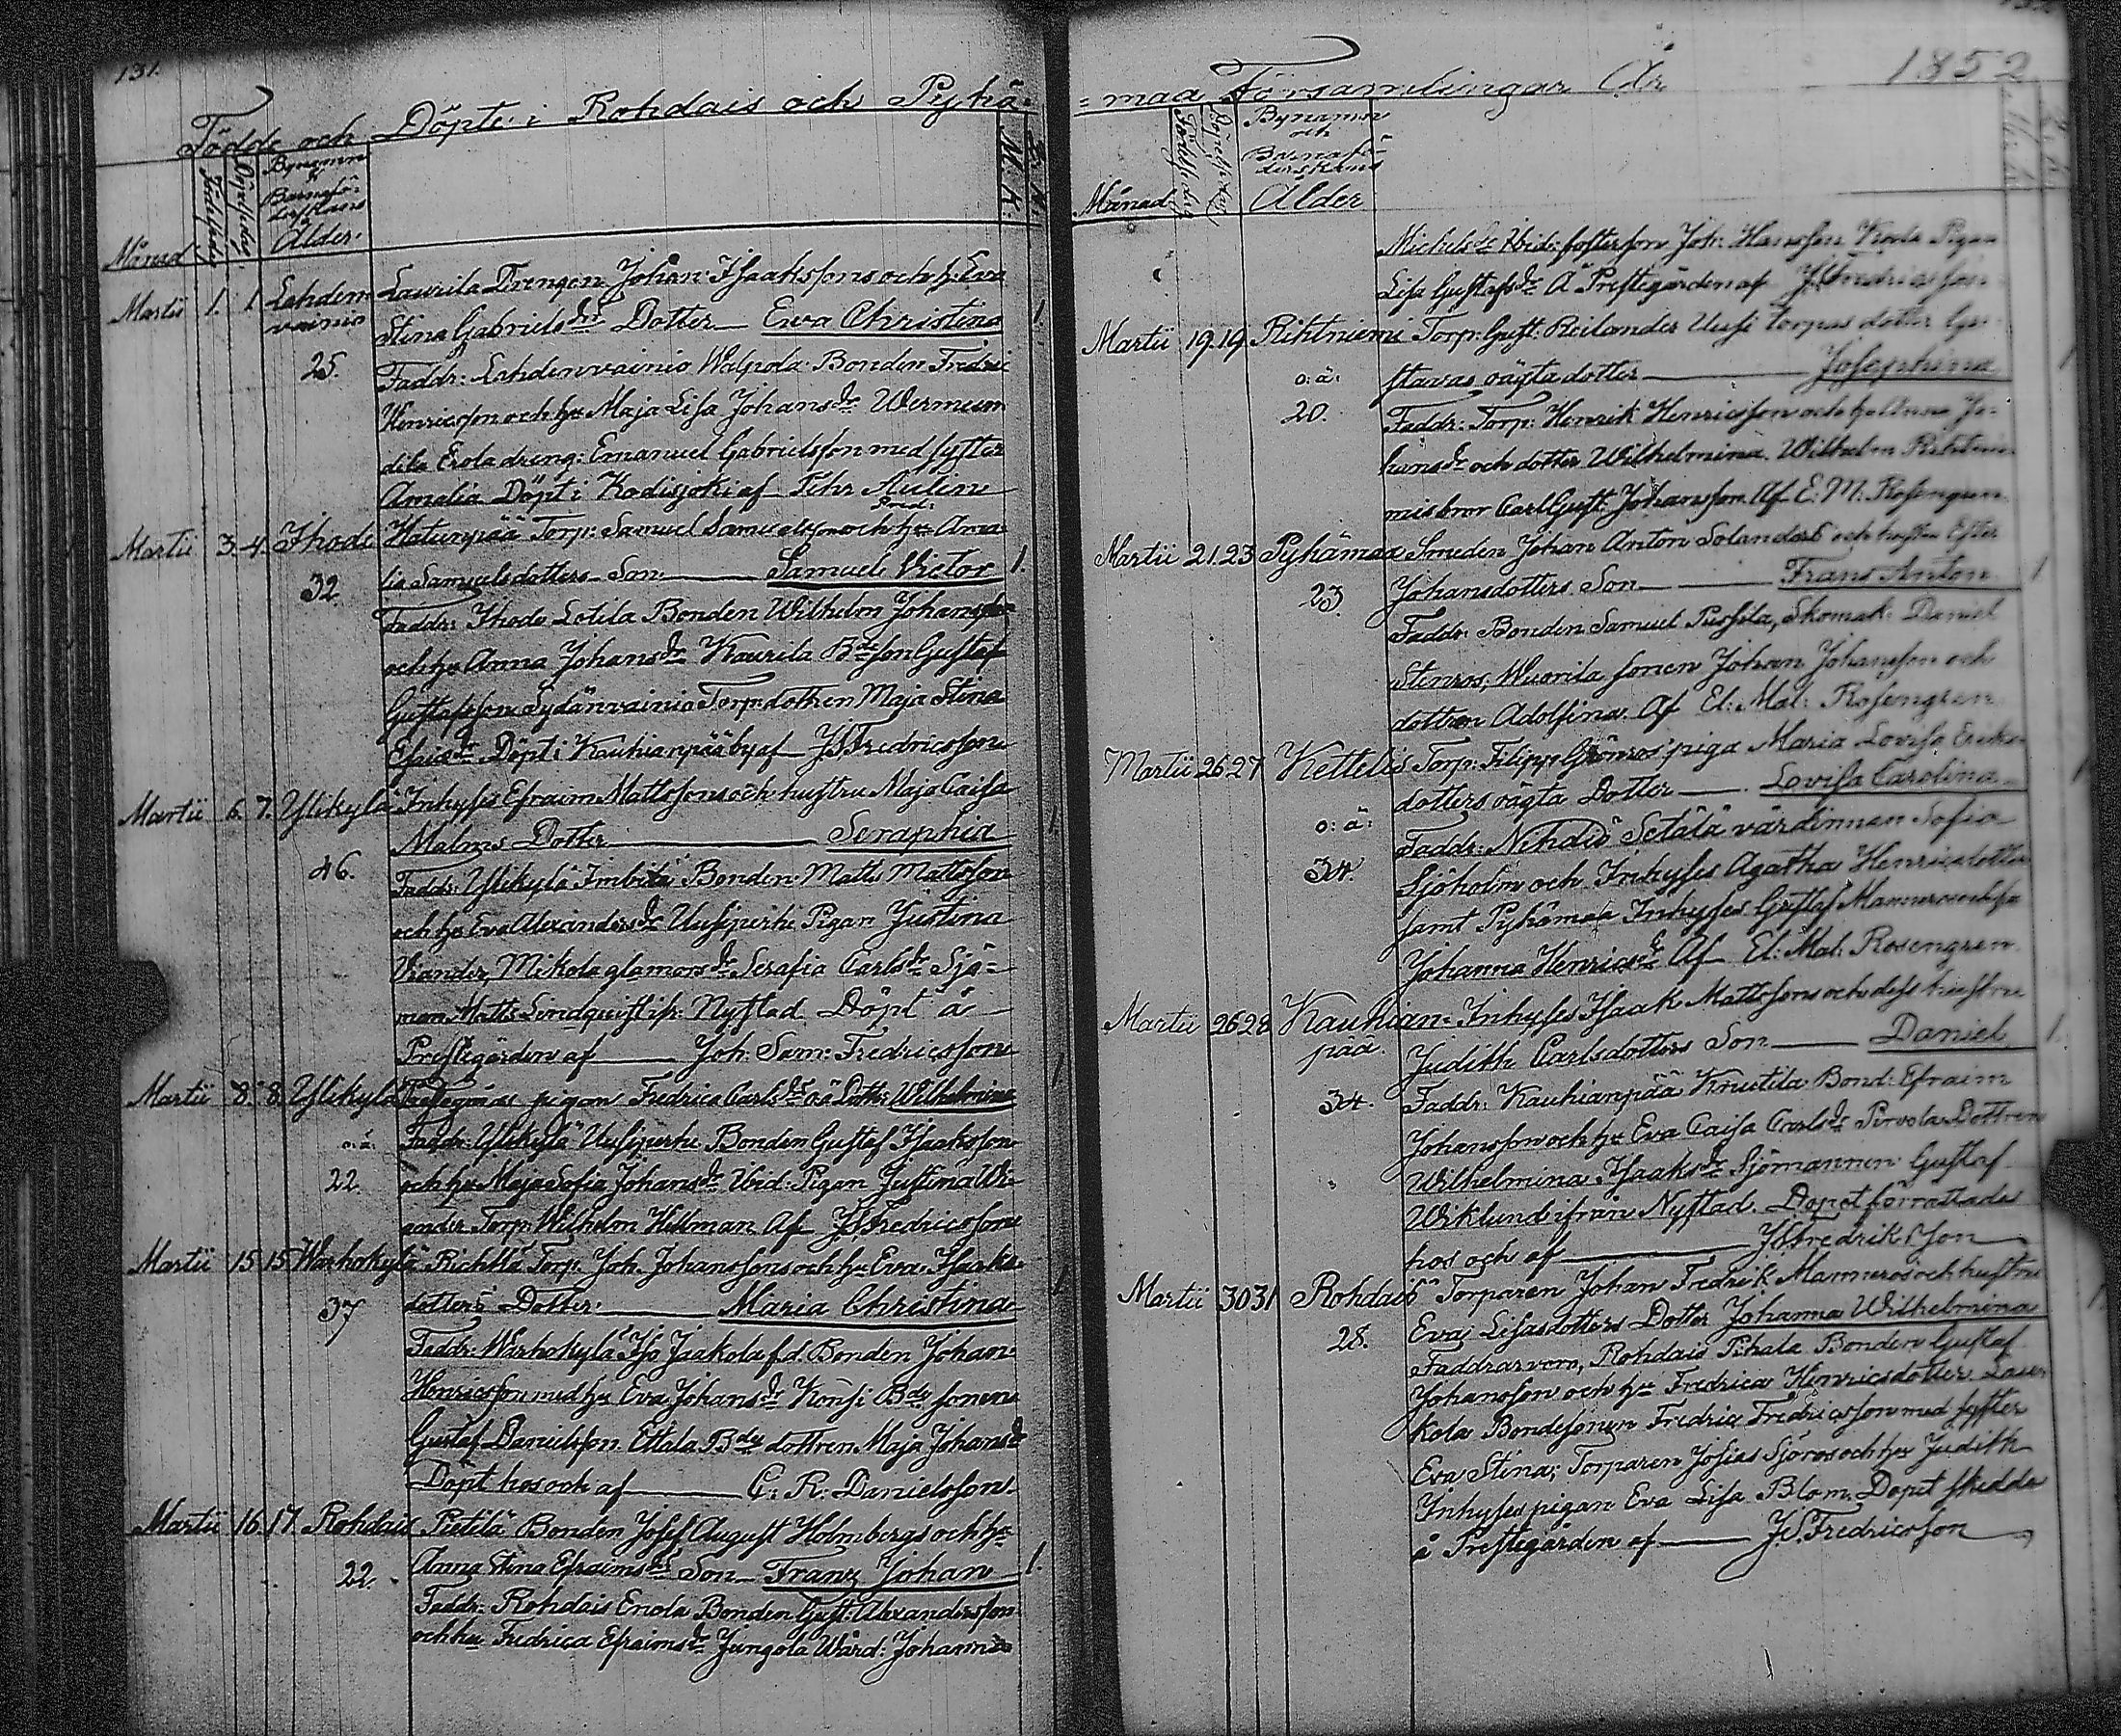 131.
Födde och Döpte i Rohdais och Pyhä-
Månad
Födelsedag
Döpelsedag
Bynamn
Barnafö-
derskans
Ålder.
M. K.
Martii 1. 1 Lahden- Laurila Drengen Johan Isaakssons och h: Eva
vainio Stina Gabrielsdrs Dotter Ewa Christina 1.
25. Faddr: Lahdenvainio Walpola Bonden Fredric
Henricsson och hu Maja Lisa Johansdr Wermun
dila Erola dreng: Emanuel Gabrielsson med syster
Amalia Döpt i Kodisjoki af Pehr Aulin
Pred:
Martii 3. 4. Ihode Haturpää Torp: Samuel Samuelsson och hu Ama-
32 lia Samuelsdotters Son Samuel Victor 1.
Faddr: Ihode Lotila Bonden Wilhelm Johansson
och hu Anna Johansdr Kaurila Bde son Gustaf
Gustafsson Sydänvainio Torp: dottren Maja Stina
Efraimsdr Döpt i Kauhianpää by af JS Fredricsson
Martii 6. 7. Ylikylä Inhyses Efraim Mattssons och hustru Maja Caisa
Malms Dotter Seraphia 1
46. Faddr: Ylikylä Imbilä Bonden Matts Mattsson
och hu Eva Alexandersdr Uusipertti Pigan Justina
Viander, Mikola glamorsdr Serafia Carlsdr Sjö-
man Matts Lindqvist ifr: Nystad Döpt å
Prestegården af Joh: Sam: Fredricsson
Martii 8. 8. Ylikylä Prestegårds pigan Fredrica Carlsdrs oä Dotter Wilhelmina 1
o: ä: Faddr: Ylikylä Uusipertti Bonden Gustaf Isaaksson
22 och hu Maja Sofia Johansdr Ibid: Pigan Justina Wi-
ander Torp: Wilhelm Hellman Af JS Fredricsson
Martii 15 15 Warhokylä Richtlä Torp: Joh: Johanssons och hu Eva Isaaks-
37 dotters Dotter Maria Christina 1
Faddr: Warhokylä Iso Jaakola f.d. Bonden Johan
Henricsson med hu Eva Johansdr Konsi Bde sonen
Gustaf Danielsson Ettala Bde dottren Maja Johansdr
Döpt hos och af C: R: Danielsson.
Martii 16 17 Rohdais Pietilä Bonden Josef August Holmbergs och hu
22. Anna Stina Efraimsdrs Son Franz Johan 1.
Faddr: Rohdais Erola Bonden Gust: Alexandersson
och hu Fredrica Efraimsdr Jungola Wärd: Johannes
=maa Församlingar År 1852
Månad
Födelsedag
Döpelsedag
Bynamn
och
Barnafö-
derskans
Ålder
Michelsdr Ibid: fosterson Joh: Hansson Kools Pigan
Lisa Gustafsdr Å Prestegården af JS Fredricsson
Martii 19. 19. Rihtniemi Torp: Gust: Reilanders Uusi torpas dotter Gu- 1
o: ä: stavas oägta dotter Josephina
20. Faddr: Torp: Henrik Henricsson och hu Anna Jo-
hansdr och dotter Wilhelmina. Wilhelm Rihtnie-
mis bror Carl Gust: Johansson. Af E: M: Rosengren
Martii 21. 23 Pyhämaa Smeden Johan Anton Solanders och hustru Ester
23. Johansdotters Son Frans Anton 1
Faddr: Bonden Samuel Pussila, Skomak: Daniel
Stenros, Wuorila sonen Johan Johansson och
dottren Adolfina. Af El: Mal: Rosengren
Martii 26 27 Kettelis Torp: Filip Grönros' piga Maria Lovisa Eriks-
dotters oägta Dotter Lovisa Carolina 1
o: ä: Faddr: Nihdiö Setälä värdinnan Sofia
34. Sjöholm och Inhyses Agatha Henricsdotter
samt Pyhämaa Inhyses Gustaf Manneros och hu
Johanna Henricsdr Af El: Mal: Rosengren
Martii 26 28 Kauhian- Inhyses Isaak Mattssons och dess hustru
pää. Judith Carlsdotters Son Daniel 1.
34. Faddr: Kauhianpää Knutila Bond: Efraim
Johansson och hu Eva Caisa Carlsdr Pirvola Dottren
Wilhelmina Isaaksdr Sjömannen Gustaf
Wiklund ifrån Nystad. Dopet förrättades
hos och af JS Fredriksson
Martii 30 31 Rohdais Torparen Johan Fredrik Manneros och hustru
28. Eva Lisasdotters Dotter Johanna Wilhelmina 1
Faddrar voro, Rohdais Pihala Bonden Gustaf
Johansson och hu Fredrica Henricsdotter Lau-
kola Bondesonen Fredric Fredricsson med syster
Eva Stina; Torparen Josias Sjöros och hu Judith
Inhyses pigan Eva Lisa Blom. Dopet skedde
å Prestegården af J.S. Fredricsson